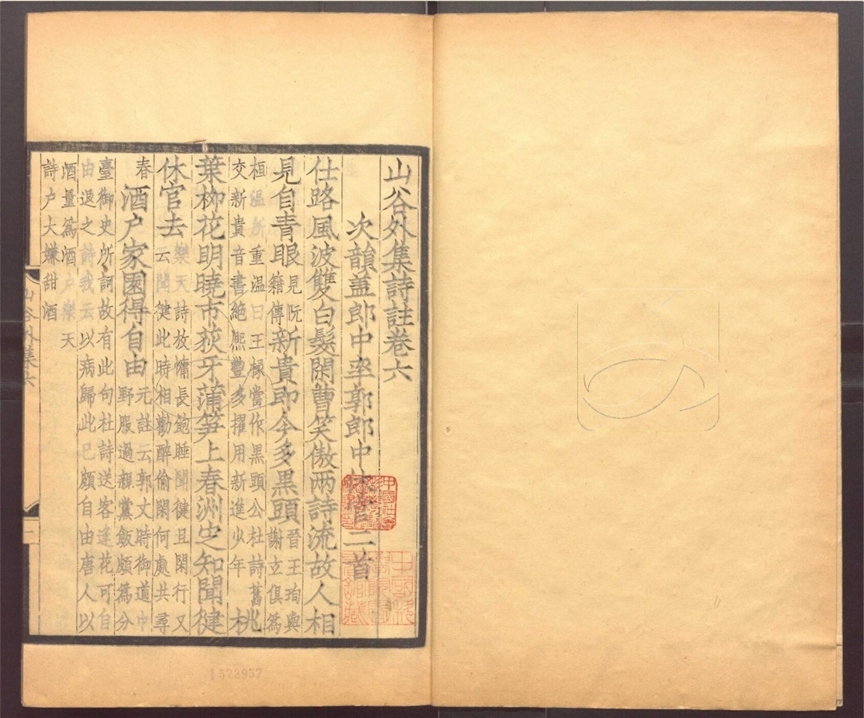 山谷外集詩註卷六
次韻蓋郎中率郭郎中休官二首
仕路風波雙白髮閑曹笑傲兩詩流故人相
見自青眼
見阮
籍傳
新貴即今多黒頭
晉王珣與
謝玄俱為
桓溫所重溫曰王掾當作黒頭公杜詩舊
交新貴音書絕熙豐多擢用新進少年
桃
葉柳花明曉市荻牙蒲笋上春洲定知聞健
休官去
樂天詩放慵長飽睡聞健且閑行又
云聞健此時相勸醉偷閑何處共尋
春
酒户家園得自由
元註云郭文時御道中
野服過親黨飯頗為分
臺御史所訶故有此句杜詩送客逢花可自
由退之詩我云以病歸此已頗自由唐人以
酒量為酒户樂天
詩户大嫌甜酒
山谷外集六
1572957